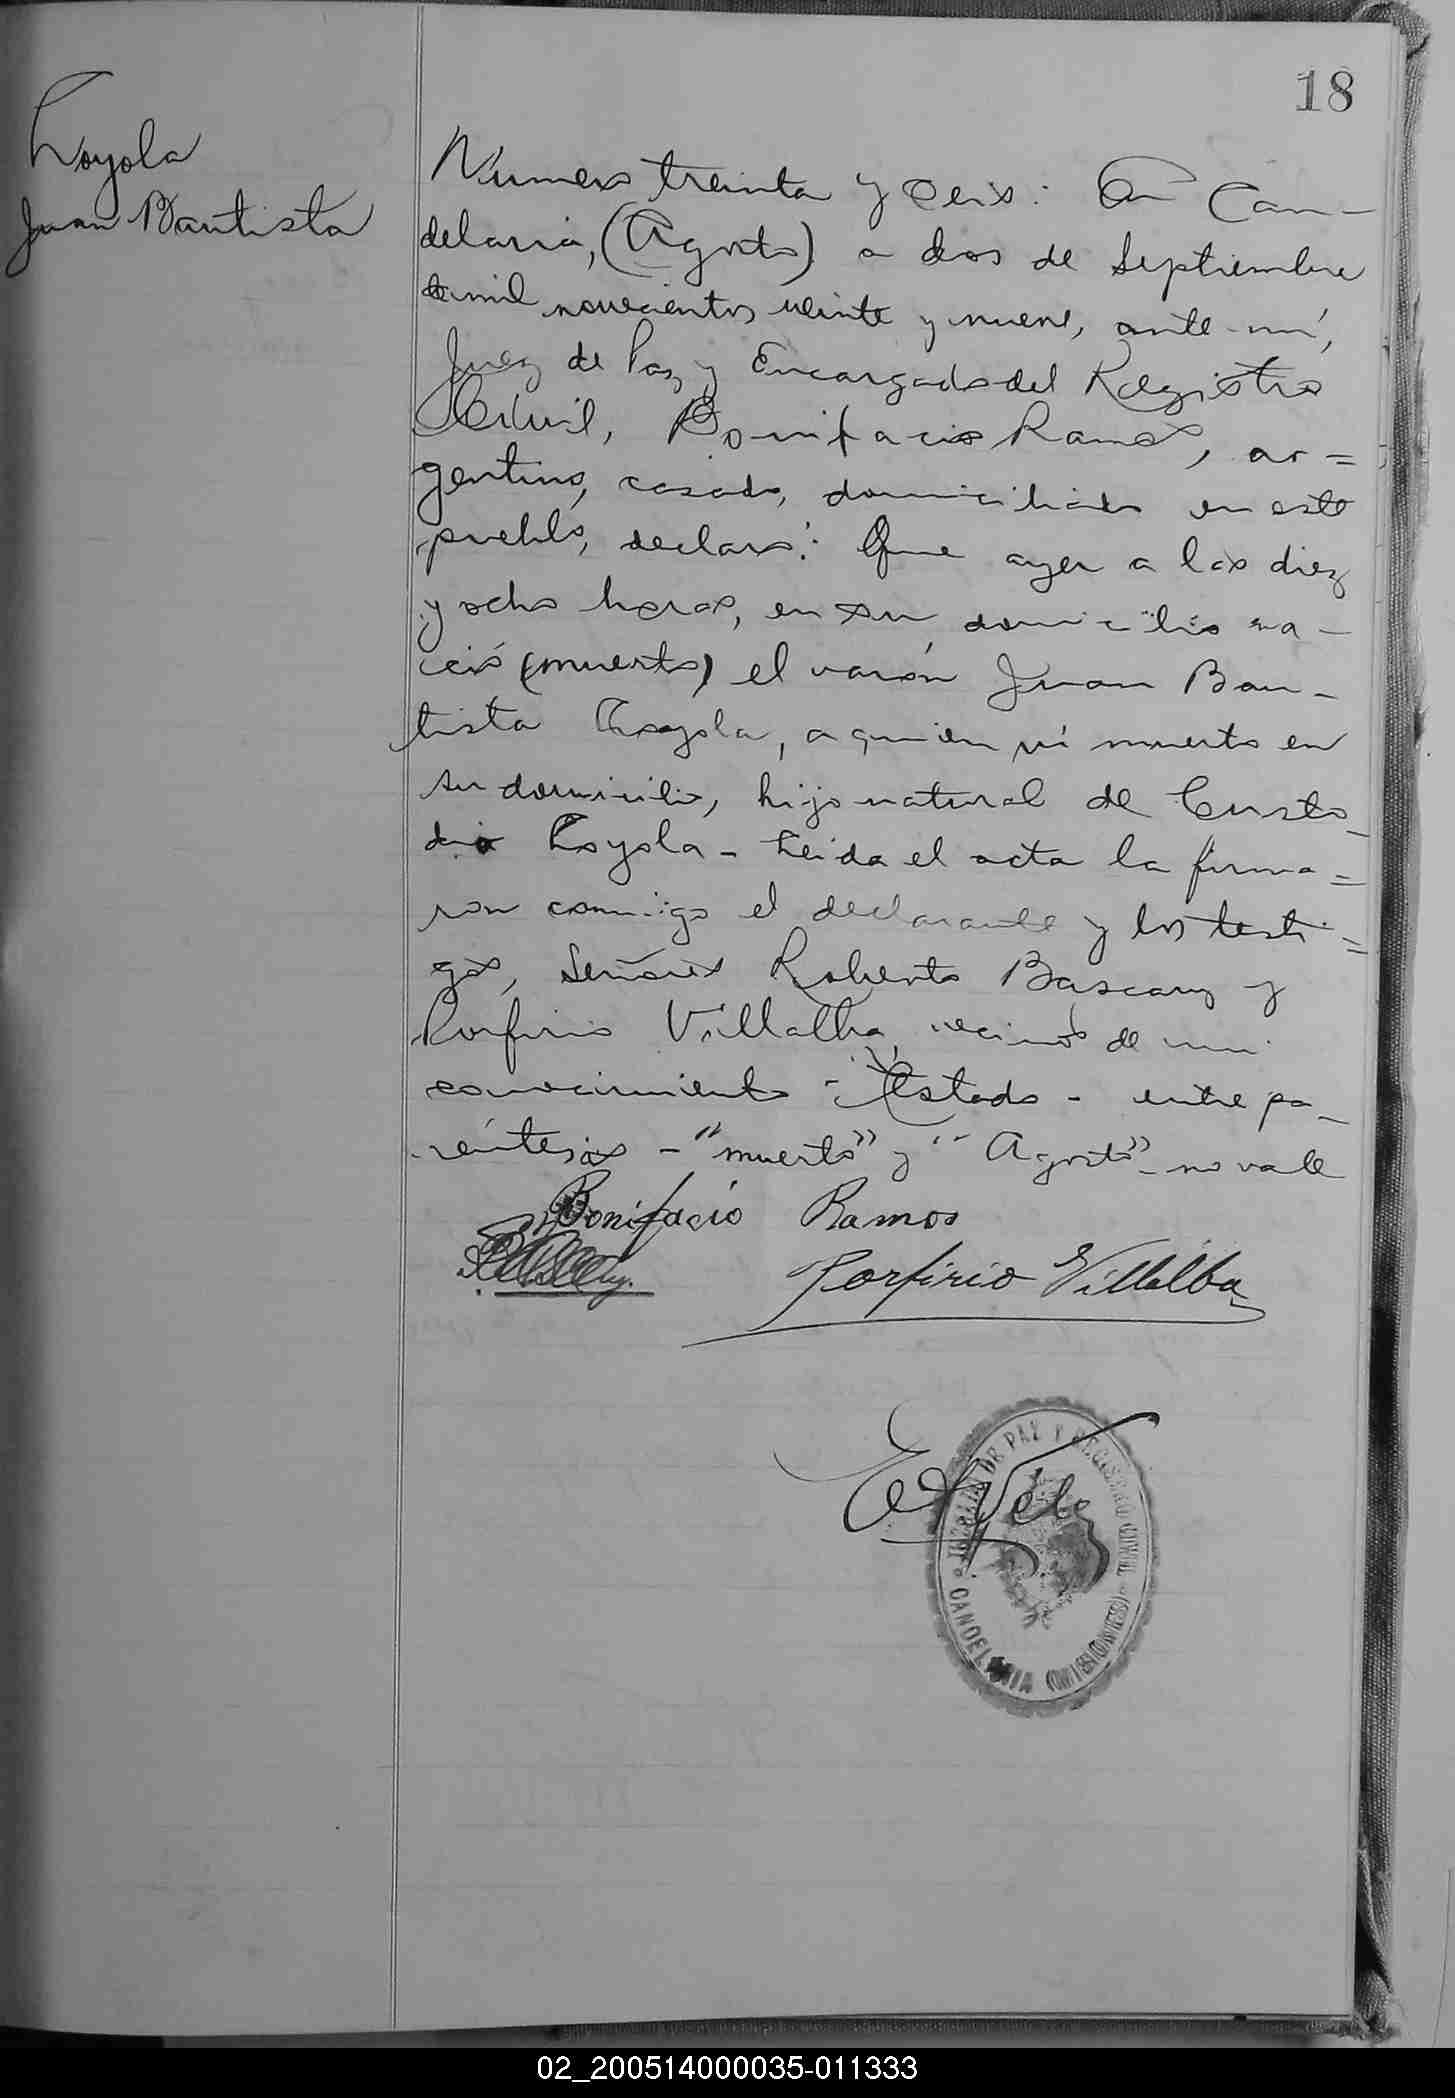 18
Loyola
Juan Bautista
Número treinta y seis: En Can-
delaria, (Agosto) a dos de Septiembre
de mil novecientos veinte y nueve, ante mí,
Juez de Paz y Encargado del Registro
Civil, Bonifacio Ramos, ar=
gentino, casado, domiciliado en este
pueblo, declaró: Que ayer a las diez
y ocho horas, en su domicilio na-
ció (muerto) el varón Juan Bau-
tista Loyola, a quien ví muerto en
su domicilio, hijo natural de Custo-
dia Loyola - Leida el acta la firma=
ron conmigo el declarante y los testi=
gos, Señores Roberto Bascary y
Porfirio Villalba, vecinos de mi
conocimiento - Testado - entre pa-
réntesis - "muerto" y "Agosto" - no vale
Bonifacio Ramos
Porfirio Villalba
JUZGADO DE PAZ Y REGISTRO CIVIL
CANDELARIA (MISIONES)
02_200514000035-011333